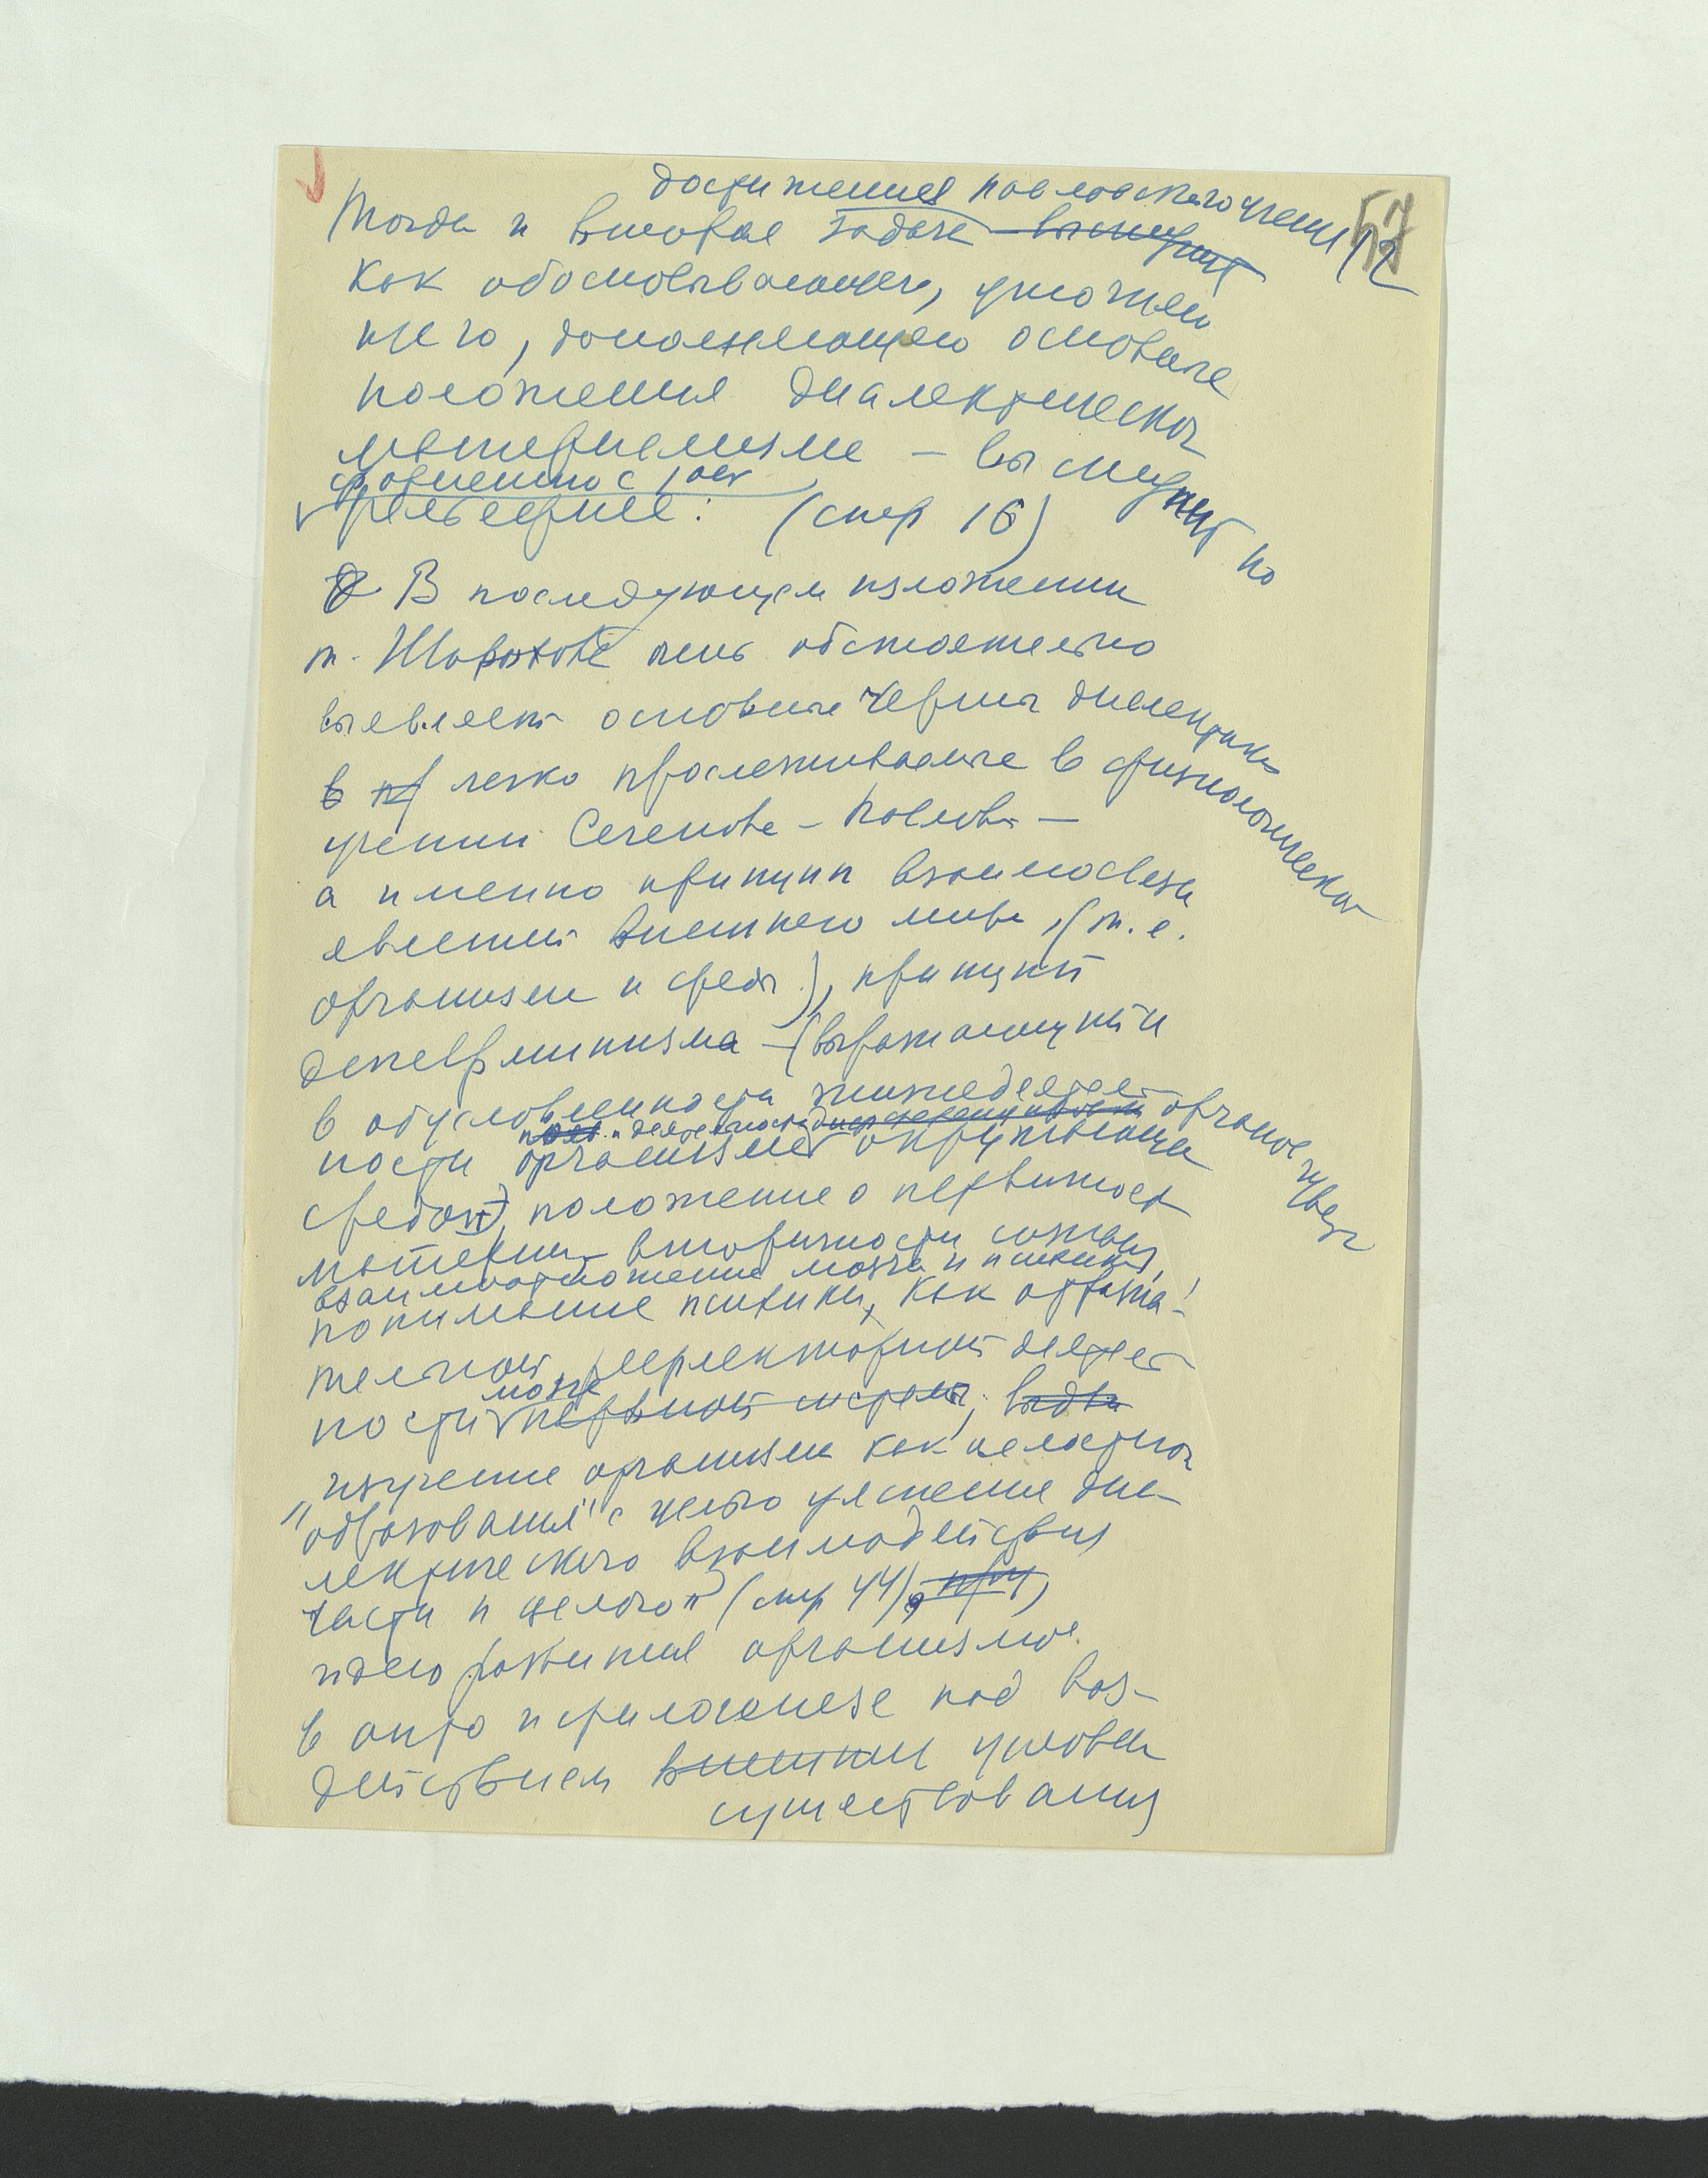 57
12
достижения павловского учения
Тогда и вторая задача выступит
как обосновывающего, умножаю
щего, дополняющего основные
положения диалектическ
материализма – выступит по
сравнению с
рельефнее: (стр 16)
В последующем изложении
т. Шорохова очень обстоятельно
выявляет основные черты диалектики
в пр легко прослеживаемые в физиологическом
учении Сеченова – Павлова –
а именно принцип взаимосвязи
явлений внешнего мира, (т.е.
организма и среды), принцип
детерминизма – (выражающийся
в обусловленности жизнедеятель
ности организма окружающей
деятельности органов чувств
средой), положение о первичности
материи – вторичности сознания,
взаимоотношение мозга и психики,
понимание психики, как отража-
тельной, рефлекторной деятель
ности нервной системы,
мозга
изучение организма как целостного
"образования" с целью уяснения диа-
лектического взаимодействия
части и целого" (стр 44),
идею развития организмов
в онто и филогенезе под воз-
действием внешних условий
существования